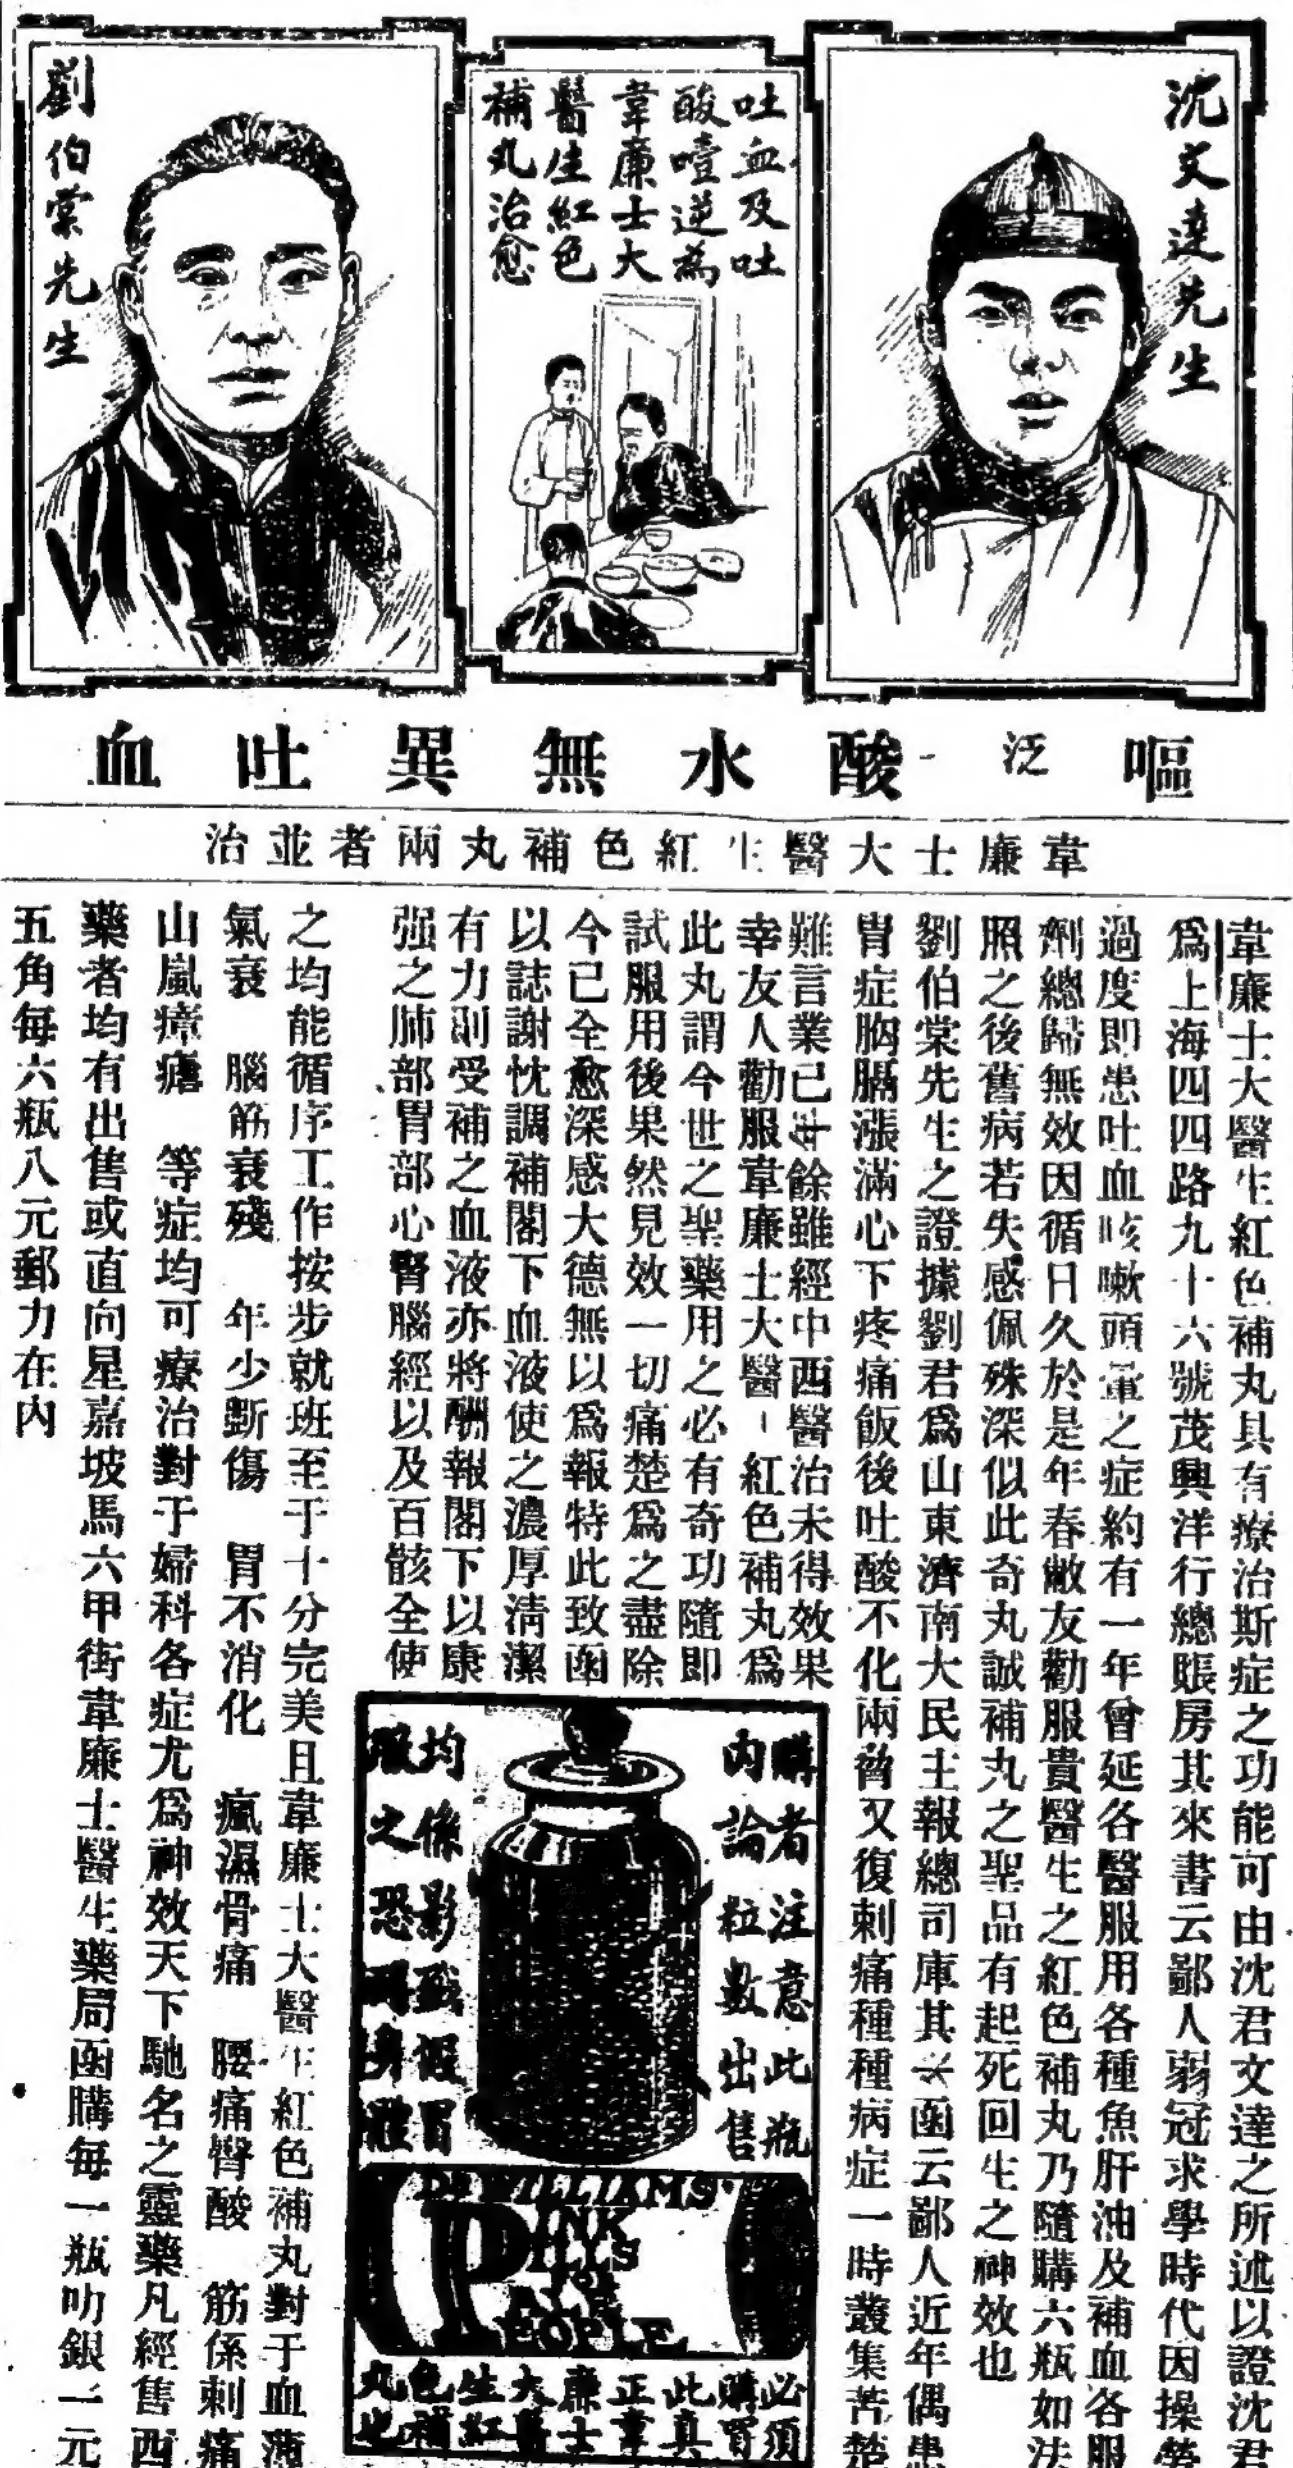 沈文達先生
吐血及吐
酸噎逆為
韋廉士大
醫生紅色
補丸治愈
劉伯棠先生
嘔泛酸水無異吐血
韋廉士大醫生紅色補丸兩者並治
韋廉士大醫生紅色補丸具有療治斯症之功能可由沈君文達之所述以證沈君
爲上海四四路九十六號茂興洋行總賬房其來書云鄙人弱冠求學時代因操勞
過度即患吐血咳嗽頭暈之症約有一年曾延各醫服用各種魚肝油及補血各服
劑總歸無效因循日久於是年春敝友勸服貴醫生之紅色補丸乃隨購六瓶如法
照之後舊病若失感佩殊深似此奇丸誠補丸之聖品有起死回生之神效也
劉伯棠先生之證據劉君爲山東濟南大民主報總司庫其來函云鄙人近年偶患
胃症胸膈漲滿心下疼痛飯後吐酸不化兩脅又復刺痛種種病症一時叢集苦楚
難言業已年餘雖經中西醫治未得效果
幸友人勸服韋廉士大醫生紅色補丸爲
此丸謂今世之聖藥用之必有奇功隨即
試服用後果然見效一切痛楚爲之盡除
今已全愈深感大德無以爲報特此致函
以誌謝忱調補閣下血液使之濃厚淸潔
有力則受補之血液亦將酬報閣下以康
强之肺部胃部心腎腦經以及百骸全使
之均能循序工作按步就班至于十分完美且韋廉士大醫生紅色補丸對于血薄
氣衰 腦筋衰殘 年少斲傷 胃不消化 瘋濕骨痛 腰痛臀酸 筋係刺痛
山嵐瘴瘧 等症均可療治對于婦科各症尤爲神效天下馳名之靈藥凡經售西
藥者均有出售或直向星嘉坡馬六甲街韋廉士醫生藥局函購每一瓶叻銀一元
五角每六瓶八元郵力在內
購者注意此瓶
內論粒數出售
均係影戤假冒
服之恐
DR WILLIAMS'
PINK
PILLS
FOR
PALE
PEOPLE
必須
購買
此真
正韋
廉士
大醫
生紅
色補
丸也